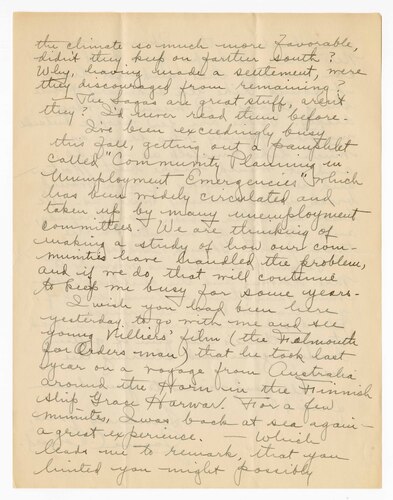 the climate so much more favorable,
didn't they keep on farther south?
Why, having made a settlement, were
they discouraged from remaining?
- The Sagas are great stuff, aren't
they? I'd never read them before.
I've been exceedingly busy
this Fall, getting out a pamphlet
called "Community Planning in
Unemployment Emergencies" which
has been widely circulated and
taken up by many unemployment
committees. We are thinking of
making a study of how our com-
munities have handled the problem,
and if we do, that will continue
to keep me busy for some years -
I wish you had been here
yesterday to go with me and see
young Villiers' film (the Falmouth
for Orders man) that he took last
year on a voyage from Australia
around the Horn in the Finnish
ship Grace Harwar. For a few
minutes, I was back at sea again -
a great experience. - Which
leads me to remark, that you
hinted you might possibly